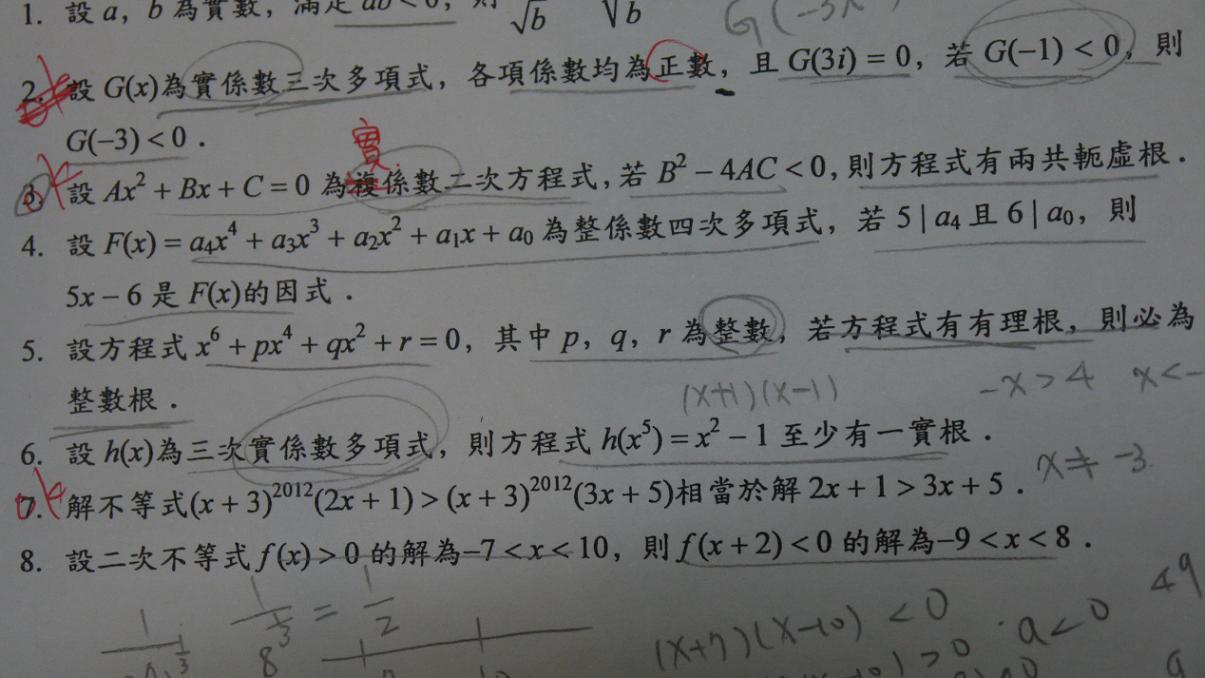 1. 設 a, b 為實數, 滿足 ab < 0, 則 √b √b G(-3x
2. 設 G(x)為實係數三次多項式, 各項係數均為正數, 且 G(3i) = 0, 若 G(-1) < 0, 則
G(-3) < 0.
實
3. 設 Ax² + Bx + C = 0 為複係數二次方程式, 若 B² - 4AC < 0, 則方程式有兩共軛虛根.
4. 設 F(x) = a₄x⁴ + a₃x³ + a₂x² + a₁x + a₀ 為整係數四次多項式, 若 5 | a₄ 且 6 | a₀, 則
5x - 6 是 F(x)的因式.
5. 設方程式 x⁶ + px⁴ + qx² + r = 0, 其中 p, q, r 為整數, 若方程式有有理根, 則必為
整數根. (x+1)(x-1) -x > 4 x < -
6. 設 h(x)為三次實係數多項式, 則方程式 h(x⁵) = x² - 1 至少有一實根.
x ≠ -3
7. 解不等式(x + 3)²⁰¹²(2x + 1) > (x + 3)²⁰¹²(3x + 5)相當於解 2x + 1 > 3x + 5.
8. 設二次不等式 f(x) > 0 的解為-7 < x < 10, 則 f(x + 2) < 0 的解為-9 < x < 8.
1/8^(1/3) = 1/2 (x+7)(x-10) < 0 a < 0 49